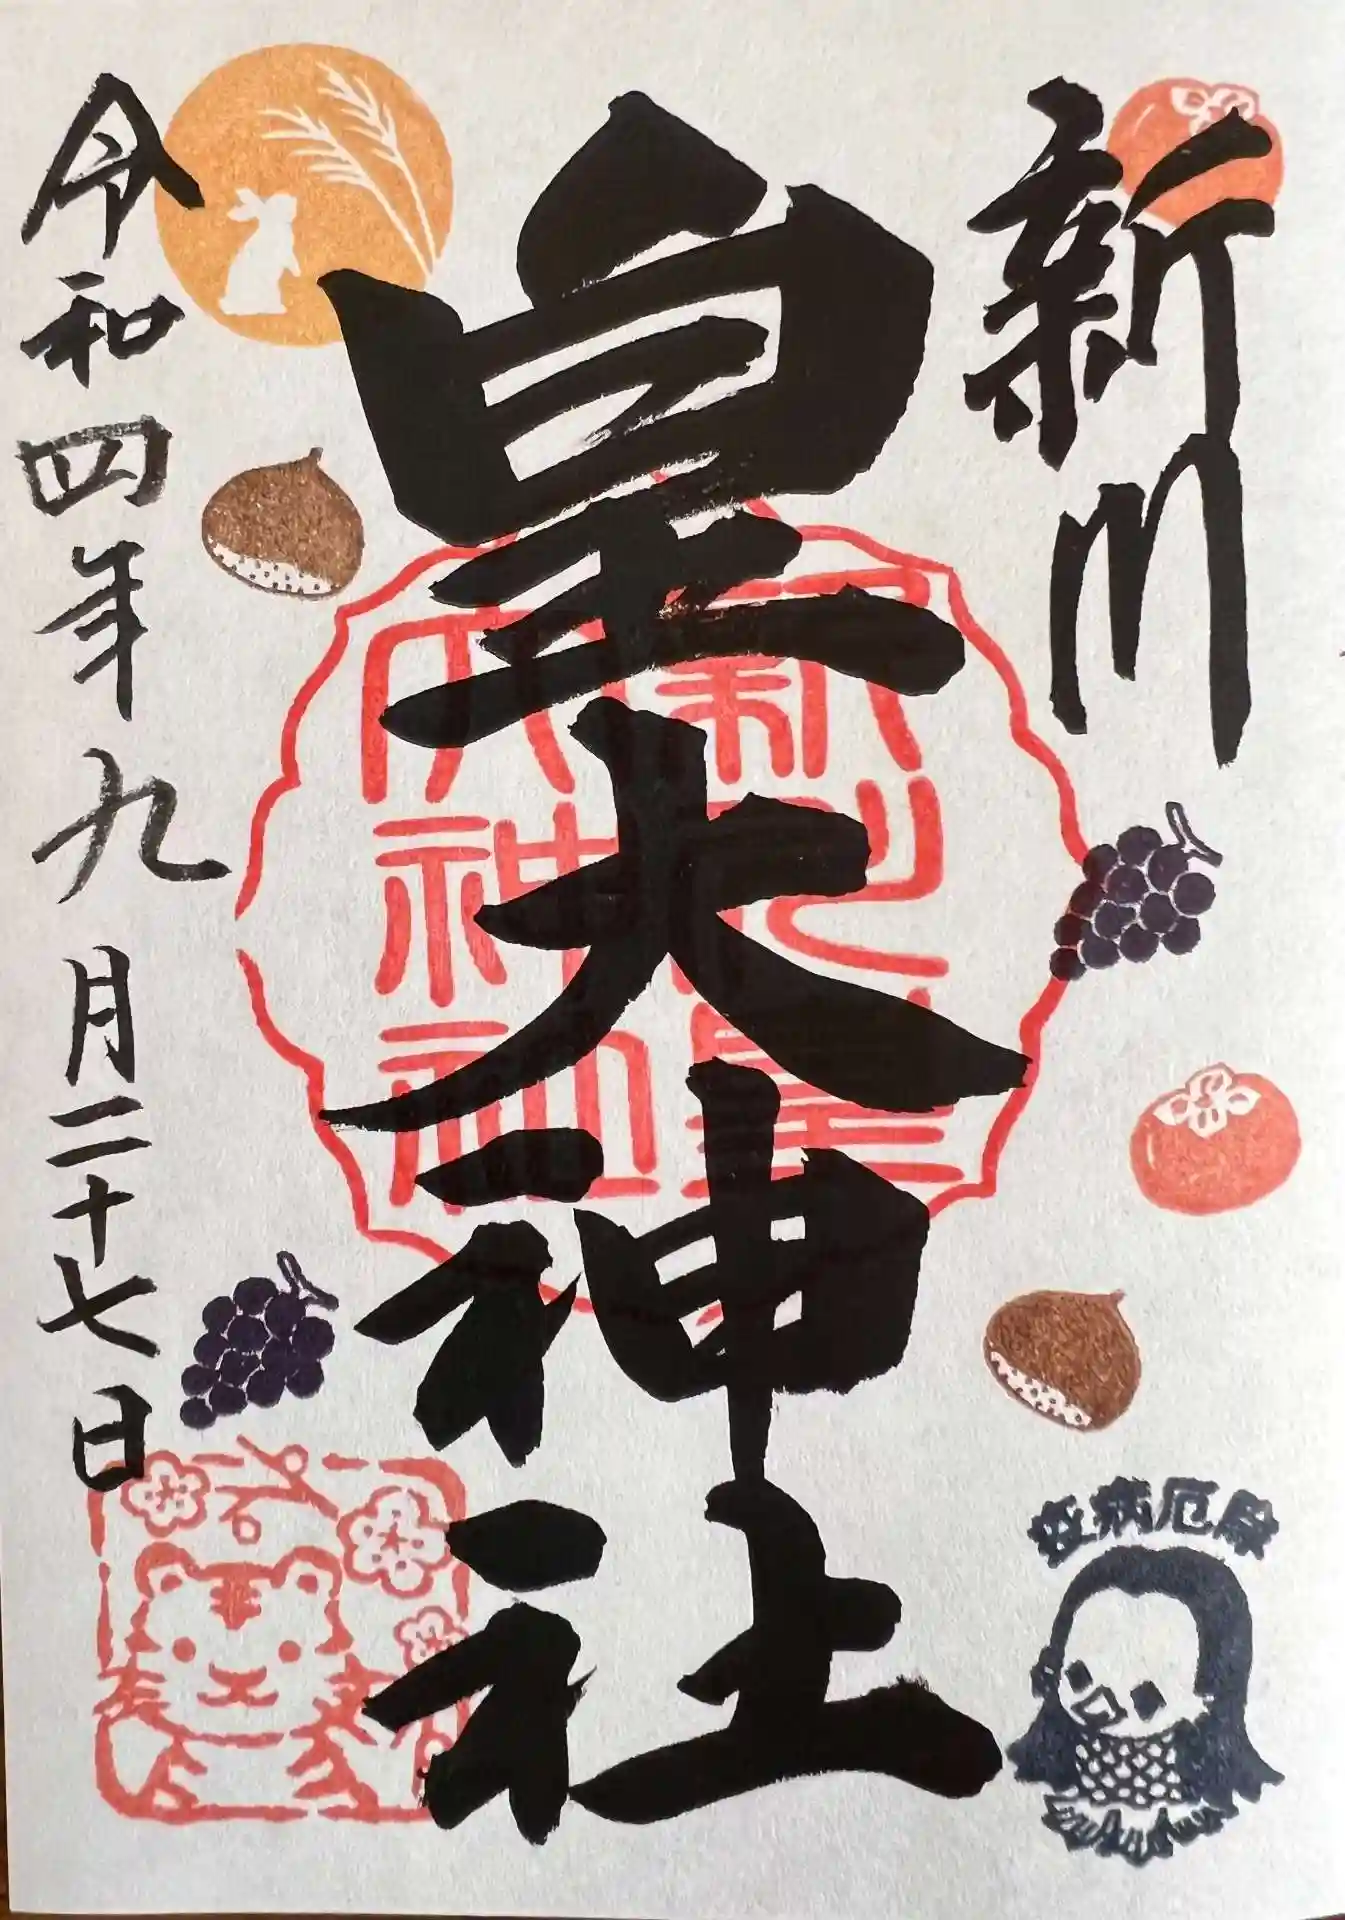 新川
皇大神社
令和四年九月二十七日
新川皇
大神社
疫病厄除